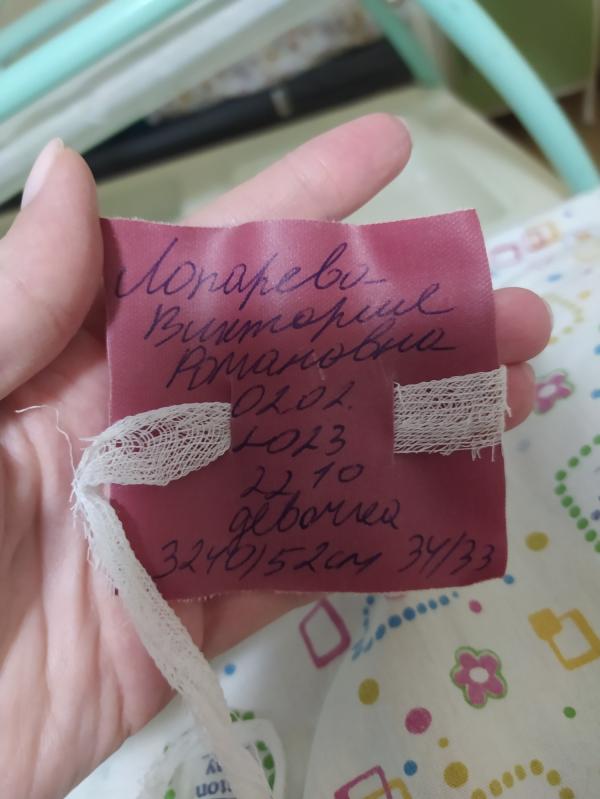 Лопарева
Виктория
Романовна
02.02.
2023
22 10
девочка
3240/52см 34/33